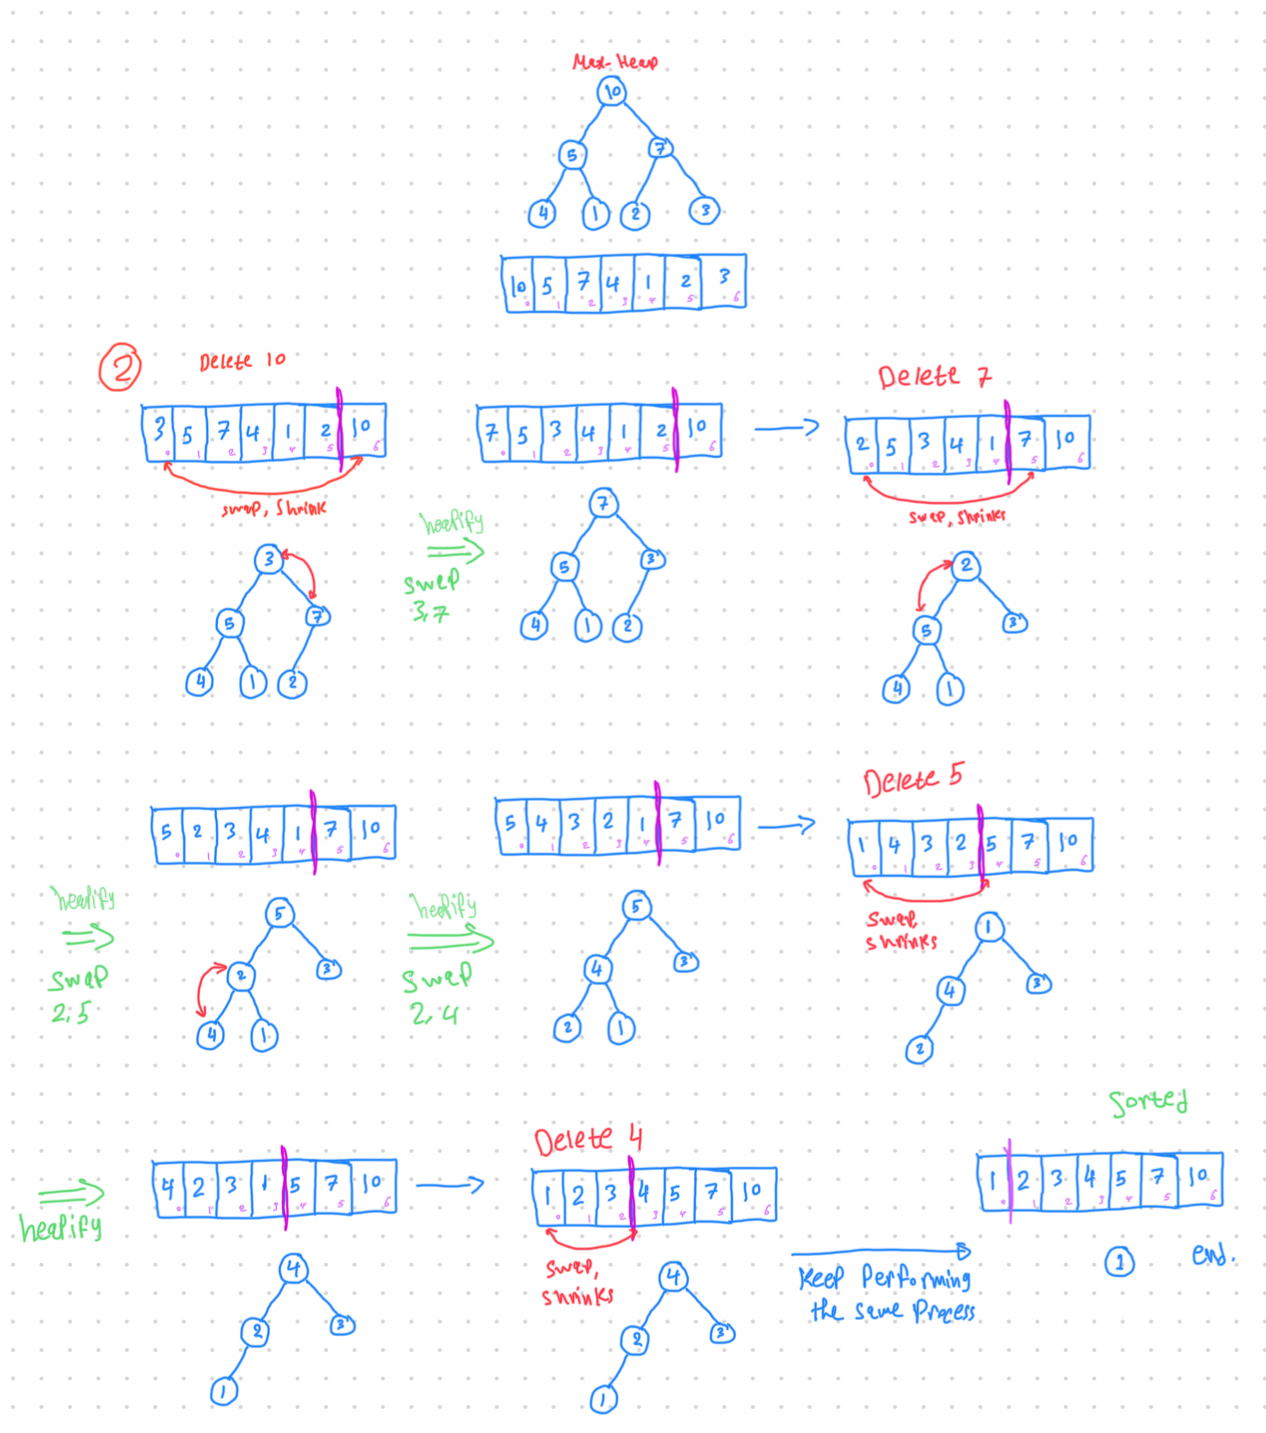 Max-Heap
10
5 7
4 1 2 3
10 5 7 4 1 2 3
0 1 2 3 4 5 6
2
Delete 10
3 5 7 4 1 2 10
0 1 2 3 4 5 6
swap, shrink
3
5 7
4 1 2
heapify
swap
3,7
7 5 3 4 1 2 10
0 1 2 3 4 5 6
7
5 3
4 1 2
Delete 7
2 5 3 4 1 7 10
0 1 2 3 4 5 6
swap, shrinks
2
5 3
4 1
heapify
swap
2,5
5 2 3 4 1 7 10
0 1 2 3 4 5 6
5
2 3
4 1
heapify
swap
2,4
5 4 3 2 1 7 10
0 1 2 3 4 5 6
5
4 3
2 1
Delete 5
1 4 3 2 5 7 10
0 1 2 3 4 5 6
swap,
shrinks
1
4 3
2
heapify
4 2 3 1 5 7 10
0 1 2 3 4 5 6
4
2 3
1
Delete 4
1 2 3 4 5 7 10
0 1 2 3 4 5 6
swap,
shrinks
4
2 3
1
Keep Performing
the same Process
Sorted
1 2 3 4 5 7 10
0 1 2 3 4 5 6
1 end.